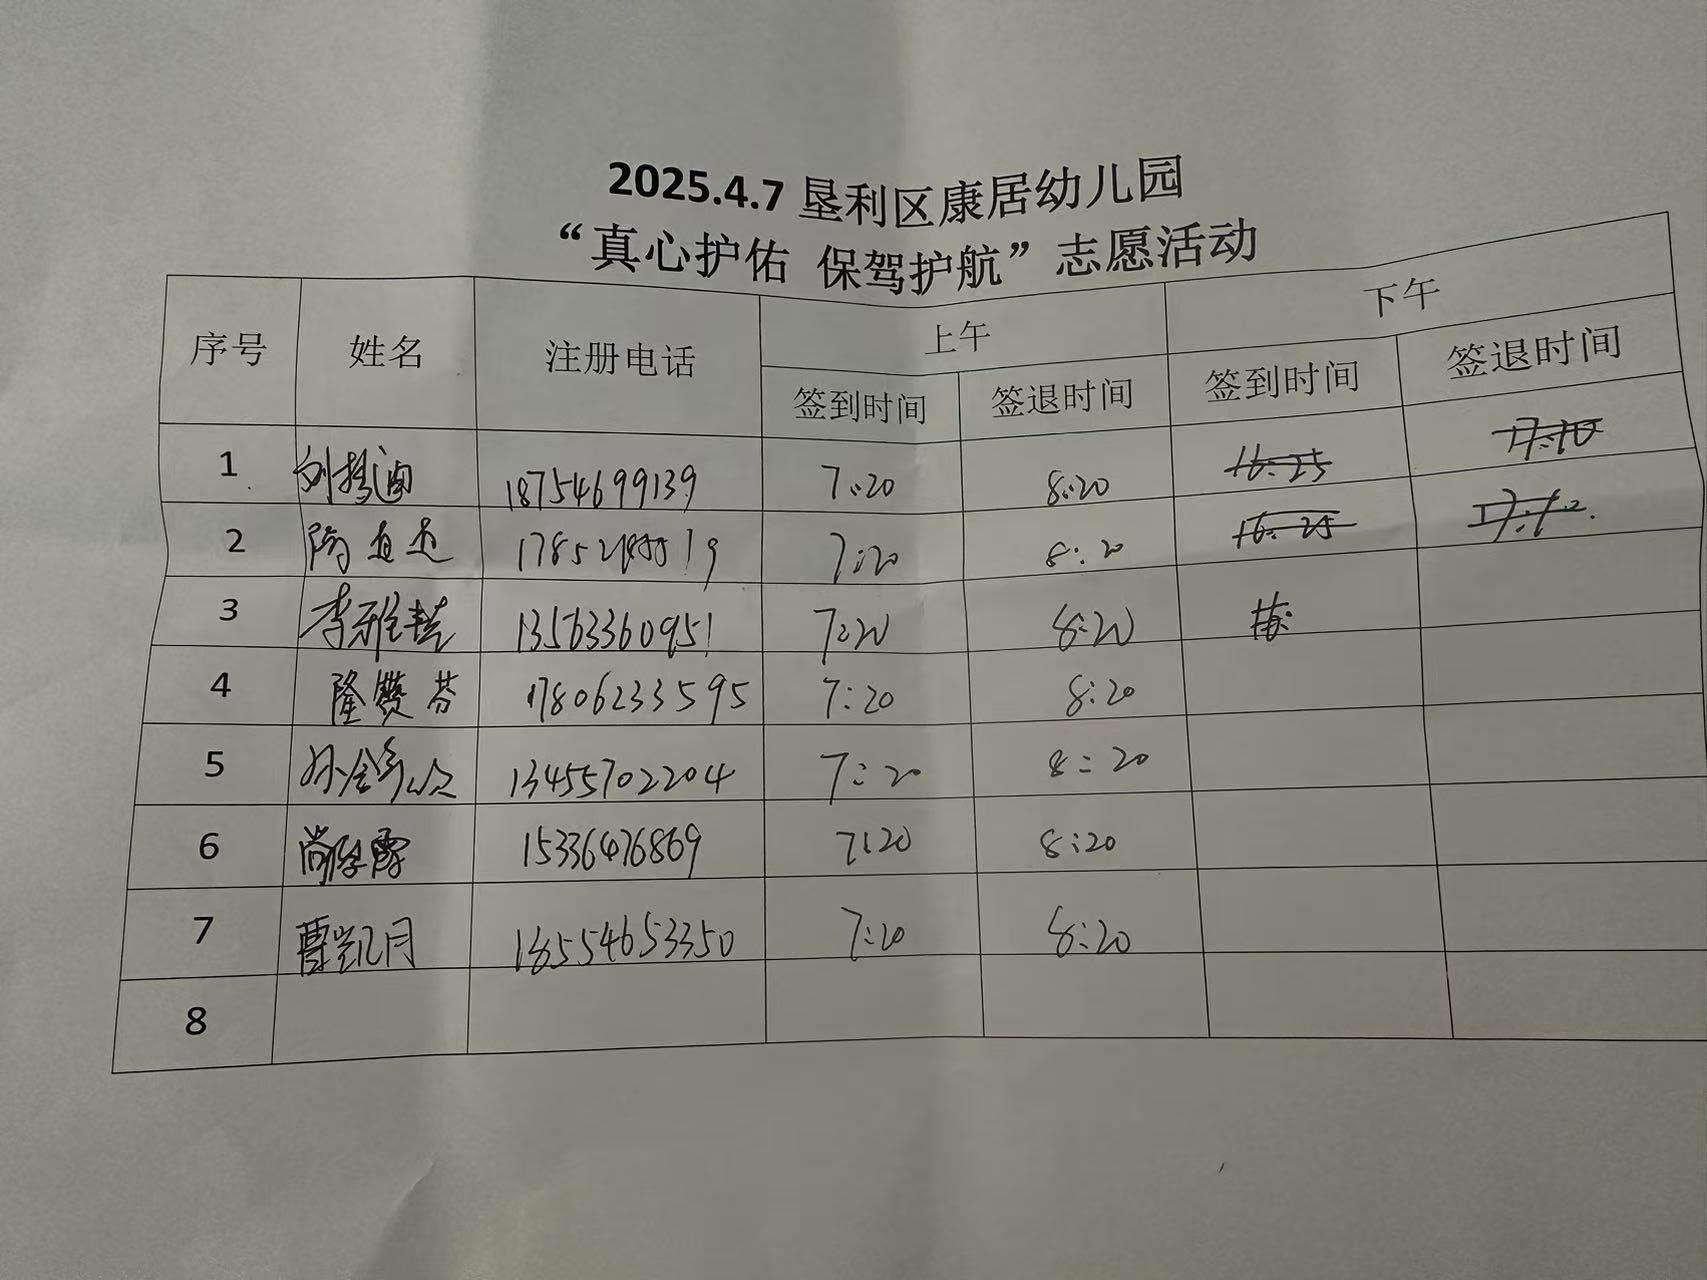 2025.4.7 垦利区康居幼儿园
“真心护佑 保驾护航”志愿活动
序号 姓名 注册电话 上午 下午
签到时间 签退时间 签到时间 签退时间
1 18754699139 7:20 8:20 16:25 17:10
2 7:20 8:20 16:25
3 13563360951 7:20 8:20
4 17806233595 7:20 8:20
5 13455702204 7:20 8:20
6 15336476869 7:20 8:20
7 曹凯月 18554653350 7:20 8:20
8